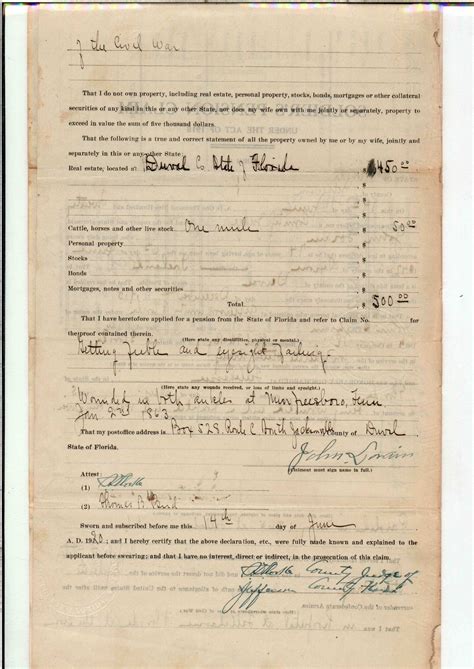 of the Civil War
That I do not own property, including real estate, personal property, stocks, bonds, mortgages or other collateral
securities of any kind in this or any other State, nor does my wife own with me jointly or separately, property to
exceed in value the sum of five thousand dollars.
That the following is a true and correct statement of all the property owned by me or by my wife, jointly and
separately in this or any other State:
Real estate, located at Duval Co State of Florida $ 450.00
Cattle, horses and other live stock One mule $ 50.00
Personal property $
Stocks $
Bonds $
Mortgages, notes and other securities $
Total $ 500.00
That I have heretofore applied for a pension from the State of Florida and refer to Claim No. for
the proof contained therein.
(Here state any disabilities, physical or mental.)
Getting feeble and eyesight failing
(Here state any wounds received, or loss of limbs and eyesight.)
Wounded in both ankles at Murfreesboro, Tenn
Jan 2nd 1863
That my postoffice address is Box 528 Route C South Jacksonville County of Duval
State of Florida.
John
(Claimant must sign name in full.)
Attest:
(1)
(2) Thomas
Sworn and subscribed before me this 14th day of June
A. D. 1920; and I hereby certify that the above declaration, etc., were fully made known and explained to the
applicant before swearing; and that I have no interest, direct or indirect, in the prosecution of this claim.
County Judge of
Jefferson County Florida